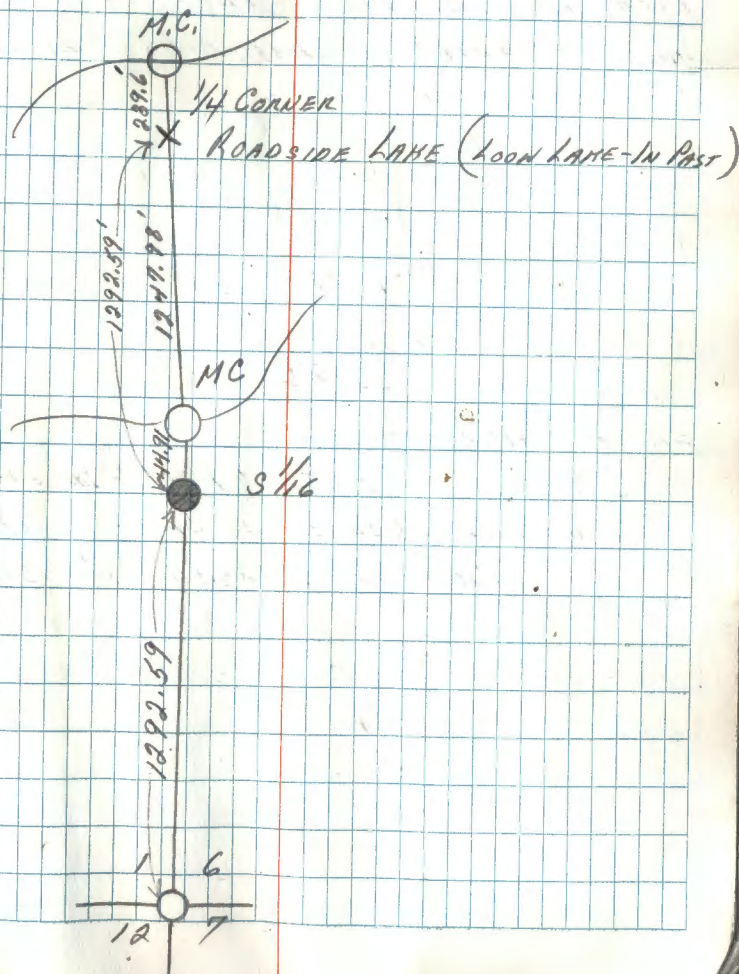 M.C.
1/4 CORNER
ROADSIDE LAKE (LOON LAKE-IN PAST)
1292.59'
1247.98'
MC
S 1/16
1292.59
1 6
12 7